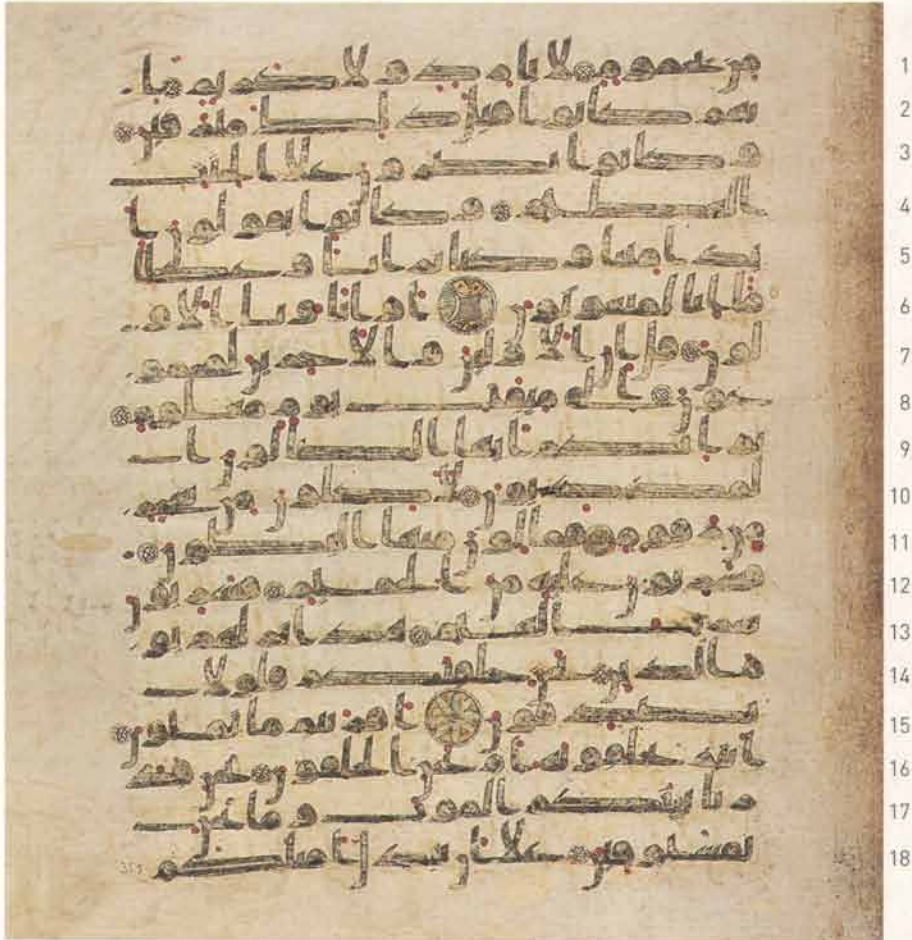 1 من يحموم لا بارد ولا كريم ان
2 هم كانوا قبل ذلك مترفين
3 وكانوا يصرون على الحنث
4 العظيم وكانوا يقولون ا
5 ئذا متنا وكنا ترابا وعظا
6 ما انا لمبعوثون او اباونا الاو
7 لون قل ان الاولين والاخرين لمجمو
8 عون الى ميقت يوم معلوم
9 ثم انكم ايها الضالون ا
10 لمكذبون لاكلون من شجر
11 من زقوم فمالون منها البطون
12 فشربون عليه من الحميم فشربون
13 شرب الهيم هذا نزلهم يو
14 م الدين نحن خلقنكم فلولا
15 تصدقون افريتم ما تمنون
16 انتم تخلقونه ام نحن الخلقون نحن قد
17 رنا بينكم الموت وما نحن
18 بمسبوقين على ان نبدل امثلكم